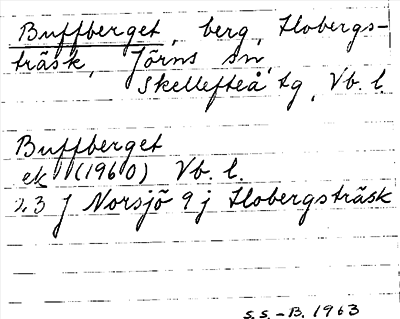 Buffberget, berg, Flobergs-
träsk, Jörns sn,
Skellefteå tg, Vb. l.
Buffberget
ek (1960) Vb. l.
23 J Norsjö 9 j Flobergsträsk
S.S.-B. 1963